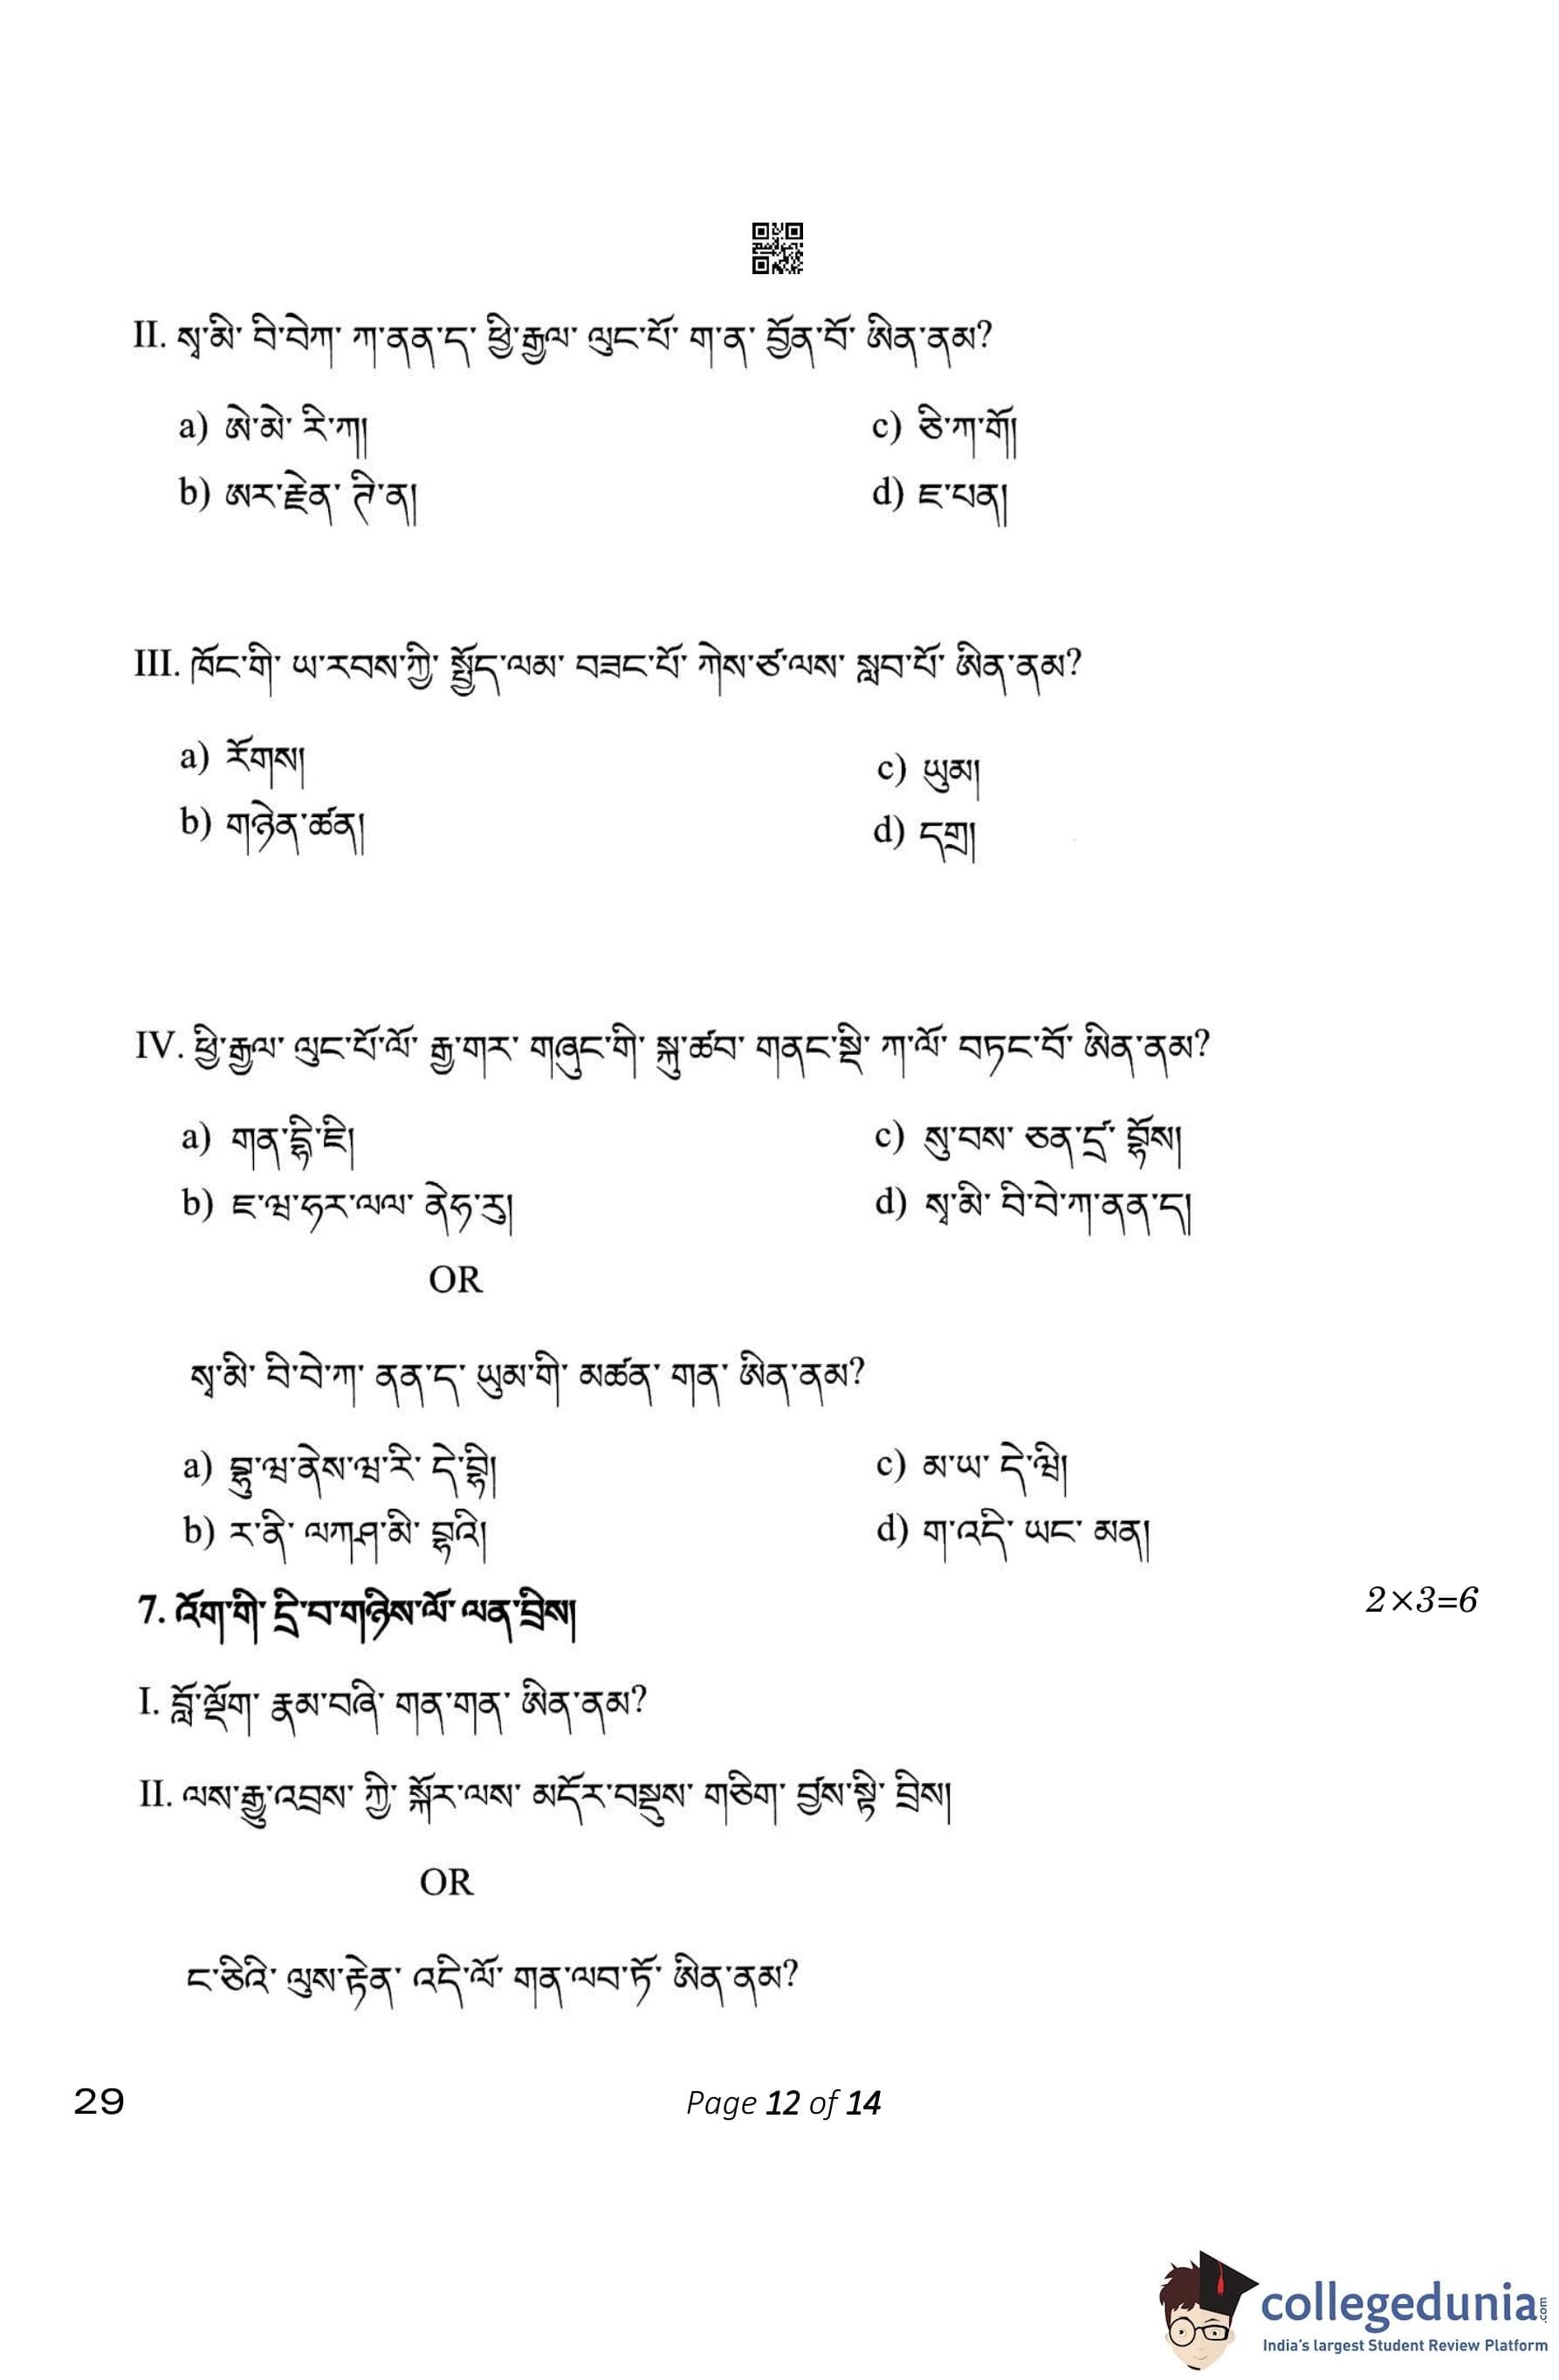 II. སྭ་མི་ བི་བེཀ་ ཀ་ནན་ད་ ཕྱི་རྒྱལ་ ལུང་པོ་ ག་ན་ བྱོན་བོ་ ཨིན་ནམ?
a) ཨེ་མེ་ རི་ཀ།
c) ཅི་ཀ་གོ།
b) ཨར་རྗེན་ ཊི་ན།
d) ཇ་པན།
III. ཁོང་གི་ ཡ་རབས་ཀྱི་ སྤྱོད་ལམ་ བཟང་པོ་ ཀེས་ཙ་ལས་ སླབ་པོ་ ཨིན་ནམ?
a) རོགས།
c) ཡུམ།
b) གཉེན་ཚན།
d) དགྲ།
IV. ཕྱི་རྒྱལ་ ལུང་པོ་ལོ་ རྒྱ་གར་ གཞུང་གི་ སྐུ་ཚབ་ གནང་སྡི་ ཀ་ལོ་ བཏང་བོ་ ཨིན་ནམ?
a) གན་དྷི་ཇི།
c) སུ་བས་ ཅན་དྲ་ བྷོས།
b) ཇ་ཝ་ཧར་ལལ་ ནེཧ་རུ།
d) སྭ་མི་ བི་བེ་ཀ་ནན་ད།
OR
སྭ་མི་ བི་བེ་ཀ་ ནན་ད་ ཡུམ་གི་ མཚན་ གན་ ཨིན་ནམ?
a) བྷུ་ཝ་ནེས་ཝ་རི་ དེ་བྷི།
c) མ་ཡ་ དེ་ཝི།
b) ར་ནི་ ལཀཤ་མི་ བྷའི།
d) ག་འདི་ ཡང་ མན།
7. འོག་གི་ དྲི་བ་གཉིས་ལོ་ ལན་བྲིས།
2×3=6
I. བློ་ལྡོག་ རྣམ་བཞི་ གན་གན་ ཨིན་ནམ?
II. ལས་རྒྱུ་འབྲས་ ཀྱི་ སྐོར་ལས་ མདོར་བསྡུས་ གཅིག་ བྱས་སྟི་ བྲིས།
OR
ང་ཅིའི་ ལུས་རྟེན་ འདི་ལོ་ གན་ལབ་ཏོ་ ཨིན་ནམ?
29
Page 12 of 14
collegedunia.com
India's largest Student Review Platform